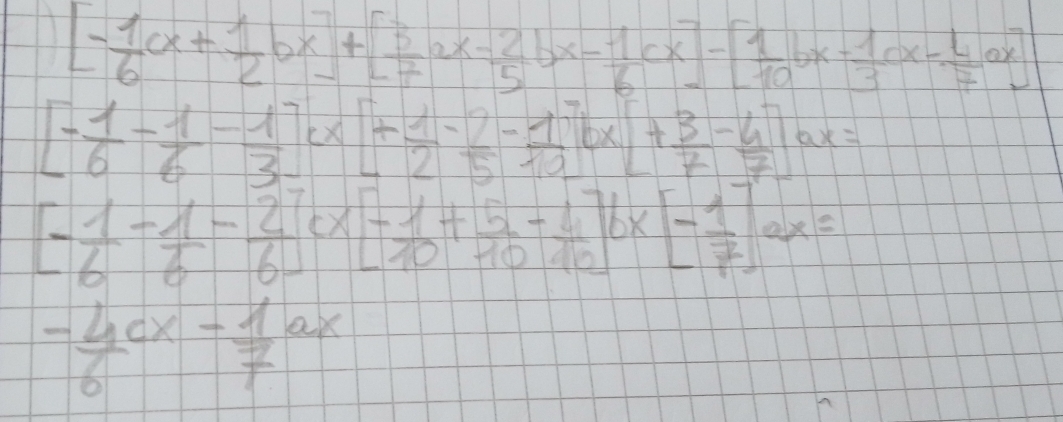 ) [-1/6 cx + 1/2 bx] + [3/7 ax - 2/5 bx - 1/6 cx] - [1/10 bx - 1/3 cx - 4/7 ax]
[-1/6 - 1/6 - 1/3] cx [+ 1/2 - 2/5 - 1/10] bx [+ 3/7 - 4/7] ax =
[-1/6 - 1/6 - 2/6] cx [-1/10 + 5/10 - 4/10] bx [-1/7] ax =
- 4/6 cx - 1/7 ax